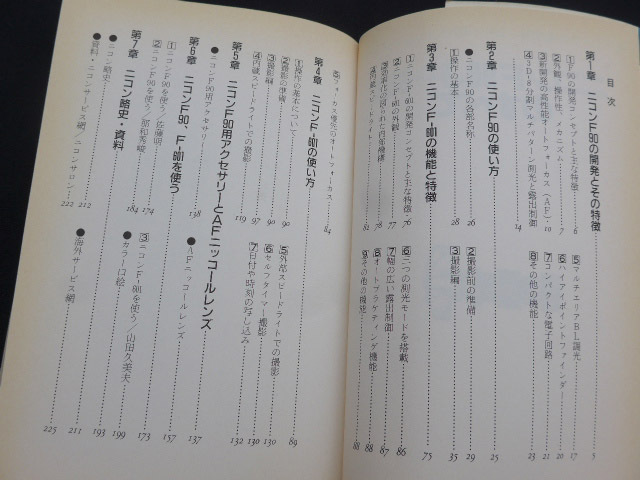 目次
第1章 ニコンF90の開発とその特徴 5
①F90の開発コンセプトと主な特徴 6
②外観、操作性、メカニズム 7
③新開発の高性能オートフォーカス（AF） 10
④3D-8分割マルチパターン測光と露出制御 14
⑤マルチエリアBL調光 17
⑥ハイアイポイントファインダー 20
⑦コンパクトな電子回路 21
⑧その他の機能 23
第2章 ニコンF90の使い方 25
●ニコンF90の各部名称 26
①操作の基本 28
②撮影前の準備 29
③撮影編 35
第3章 ニコンF-601の機能と特徴 75
①ニコンF-601の開発コンセプトと主な特徴 76
②ニコンF-601の外観 77
③効率化の図られた内部機構 78
④内蔵スピードライト 81
⑤フォーカス優先のオートフォーカス 84
⑥三つの測光モードを搭載 86
⑦幅の広い露出制御 87
⑧オートブラケティング機能 88
⑨その他の機能 88
第4章 ニコンF-601の使い方 89
①操作の基本について 90
②撮影の準備 90
③撮影編 97
④内蔵スピードライトでの撮影 119
⑤外部スピードライトでの撮影 130
⑥セルフタイマー撮影 130
⑦日付や時刻の写し込み 132
第5章 ニコンF90用アクセサリーとAFニッコールレンズ 137
●ニコンF90用アクセサリー 138
●AFニッコールレンズ 157
第6章 ニコンF90、F-601を使う 173
①ニコンF90を使う／佐藤明 174
②ニコンF90を使う／那和秀峻 184
③ニコンF-601を使う／山田久美夫 199
●カラー口絵 193
第7章 ニコン略史・資料 211
●ニコン略史 212
●資料・ニコンサービス網／ニコンサロン 222
●海外サービス網 225